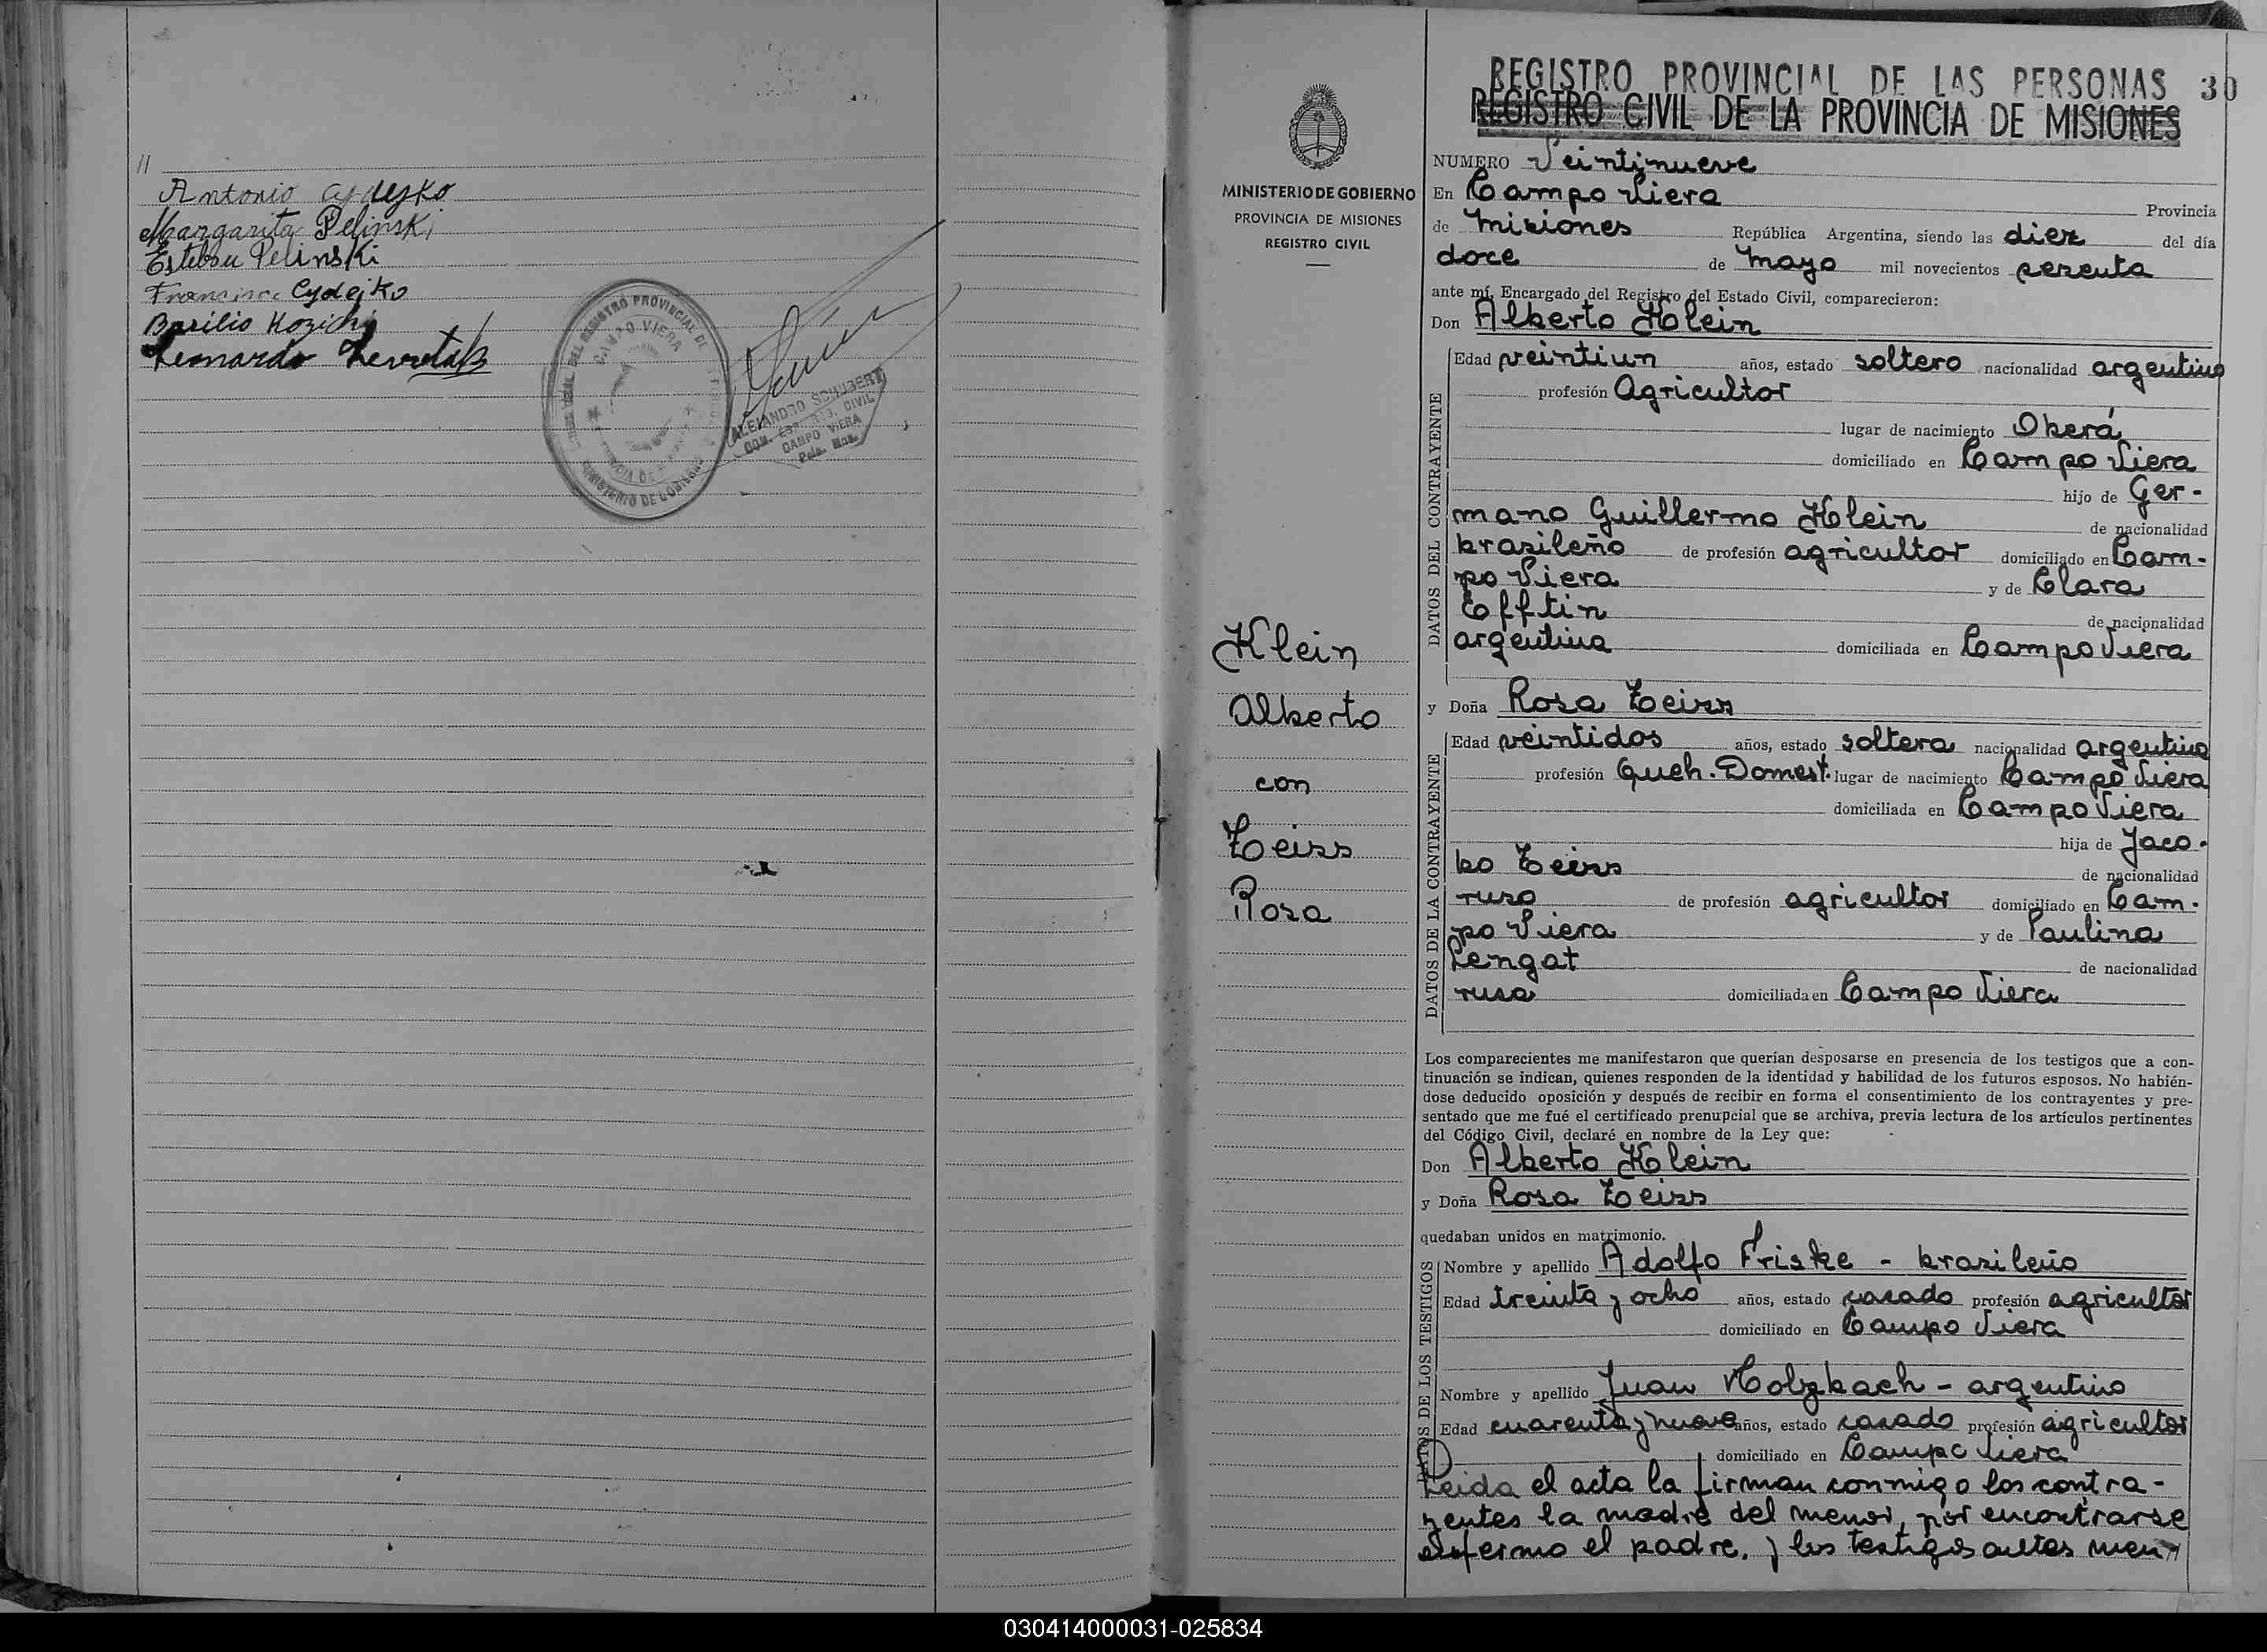 //
Antonio Cydejko
Margarita Pelinski
Esteban Pelinski
Francisca Cydejko
Basilio Kozicki
Leonardo
REGISTRO PROVINCIAL DE
CAMPO VIERA
MINISTERIO DE GOBIERNO
ALEJANDRO SCHUBERT
CAMPO VIERA
Pcia. Mns.
MINISTERIO DE GOBIERNO
PROVINCIA DE MISIONES
REGISTRO CIVIL
Klein
Alberto
con
Zeiss
Rosa
REGISTRO PROVINCIAL DE LAS PERSONAS 30
REGISTRO CIVIL DE LA PROVINCIA DE MISIONES
NUMERO Veintinueve
En Campo Viera Provincia
de Misiones República Argentina, siendo las diez del día
doce de Mayo mil novecientos sesenta
ante mí, Encargado del Registro del Estado Civil, comparecieron:
Don Alberto Klein
DATOS DEL CONTRAYENTE
Edad veintiun años, estado soltero nacionalidad argentino
profesión Agricultor
lugar de nacimiento Oberá
domiciliado en Campo Viera
hijo de Ger-
mano Guillermo Klein de nacionalidad
brasileño de profesión agricultor domiciliado en Cam-
po Viera y de Clara
Efftin de nacionalidad
argentina domiciliada en Campo Viera
y Doña Rosa Zeiss
DATOS DE LA CONTRAYENTE
Edad veintidos años, estado soltera nacionalidad argentina
profesión Queh. Domest. lugar de nacimiento Campo Viera
domiciliada en Campo Viera
hija de Jaco-
bo Zeiss de nacionalidad
ruso de profesión agricultor domiciliado en Cam-
po Viera y de Paulina
Lengat de nacionalidad
rusa domiciliada en Campo Viera
Los comparecientes me manifestaron que querían desposarse en presencia de los testigos que a con-
tinuación se indican, quienes responden de la identidad y habilidad de los futuros esposos. No habién-
dose deducido oposición y después de recibir en forma el consentimiento de los contrayentes y pre-
sentado que me fué el certificado prenupcial que se archiva, previa lectura de los artículos pertinentes
del Código Civil, declaré en nombre de la Ley que:
Don Alberto Klein
y Doña Rosa Zeiss
quedaban unidos en matrimonio.
DATOS DE LOS TESTIGOS
Nombre y apellido Adolfo Friske - brasileño
Edad treinta y ocho años, estado casado profesión agricultor
domiciliado en Campo Viera
Nombre y apellido Juan Holzbach - argentino
Edad cuarenta y nueve años, estado casado profesión agricultor
domiciliado en Campo Viera
Leida el acta la firman conmigo los contra-
yentes la madre del menor, por encontrarse
enfermo el padre, y los testigos antes men//
030414000031-025834